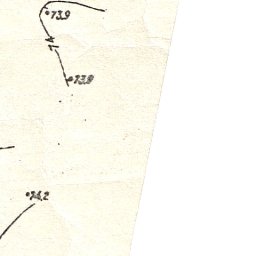 73.9
74
73.9
74.2